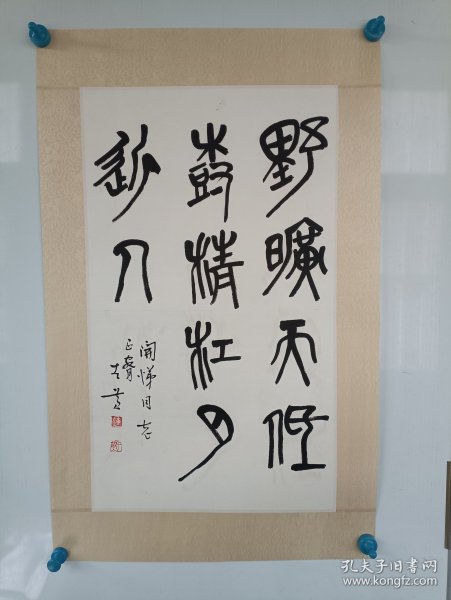 野曠天低
樹清江月
近人
開悌同志
正腕
孔夫子旧书网
www.kongfz.com